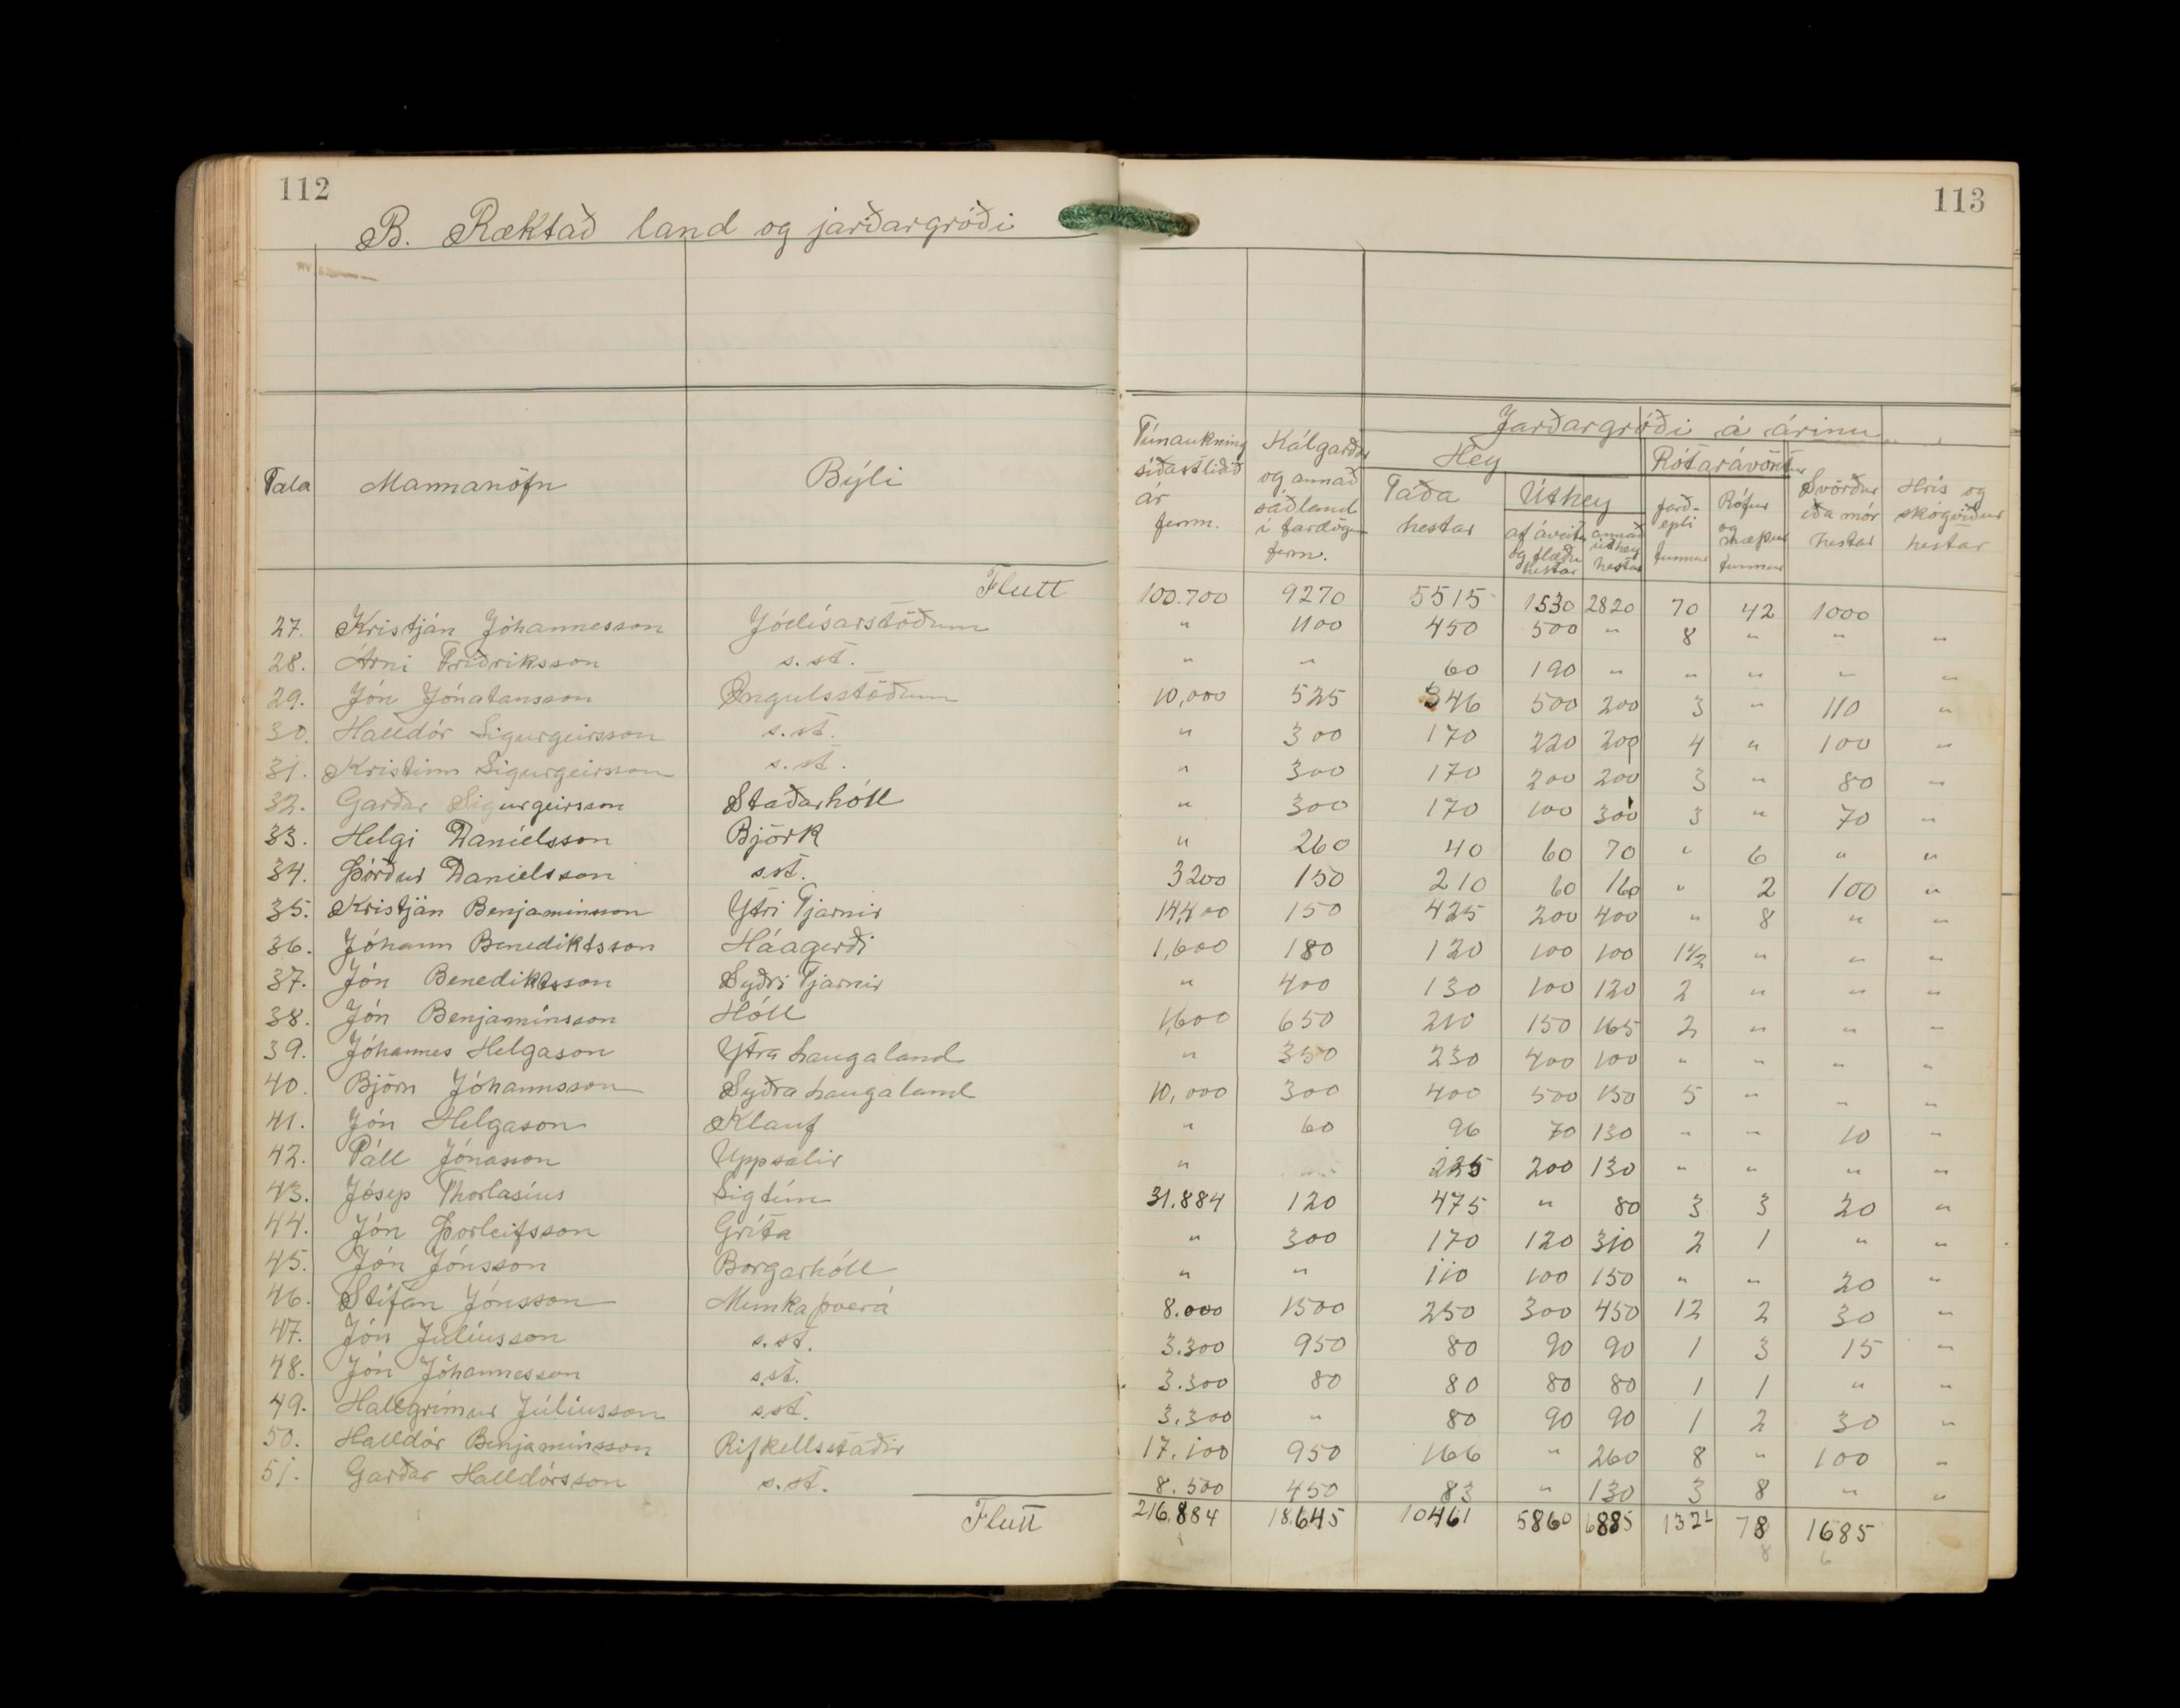 112
113
B. Ræktað land og jarðargróði
Tala Mannanöfn Býli Túnaukning síðastliðið ár ferm. Kálgarðar og annað sáðland í fardögum ferm. Jarðargróði á árinu Hey Taða hestar Úthey af áveitu og flæðu hestar annað úthey hestar Rótarávöxtur Jarð-epli tunnur Rófur og næpur tunnur Svörður eða mór hestar Hrís og skógviður hestar
Flutt 100.700 9270 5515 1530 2820 70 42 1000
27. Kristján Jóhannesson Jódísarstöðum " 1100 450 500 " 8 " " "
28. Árni Friðriksson s.st. " " 60 190 " " " " "
29. Jón Jónatansson Öngulsstöðum 10,000 525 346 500 200 3 " 110 "
30. Halldór Sigurgeirsson s.st. " 300 170 220 200 4 " 100 "
31. Kristinn Sigurgeirsson s.st. " 300 170 200 200 3 " 80 "
32. Garðar Sigurgeirsson Staðarhóll " 300 170 100 300 3 " 70 "
33. Helgi Daníelsson Björk " 260 40 60 70 " 6 " "
34. Þórður Daníelsson s.st. 3200 150 210 60 160 " 2 100 "
35. Kristján Benjamínsson Ytri Tjarnir 14,400 150 425 200 400 " 8 " "
36. Jóhann Benediktsson Háagerði 1,600 180 120 100 100 1 1/2 " " "
37. Jón Benediktsson Syðri Tjarnir " 400 130 100 120 2 " " "
38. Jón Benjamínsson Hóll 1,600 650 210 150 165 2 " " "
39. Jóhannes Helgason Ytra Laugaland " 350 230 400 100 " " " "
40. Björn Jóhannsson Syðra Laugaland 10,000 300 400 500 150 5 " " "
41. Jón Helgason Klauf " 60 96 70 130 " " 10 "
42. Páll Jónasson Uppsalir " 225 200 130 " " " "
43. Jósep Thorlasíus Sigtún 31.884 120 475 " 80 3 3 20 "
44. Jón Þorleifsson Grýta " 300 170 120 310 2 1 " "
45. Jón Jónsson Borgarhóll " " 110 100 150 " " 20 "
46. Stefán Jónsson Munkaþverá 8.000 1500 250 300 450 12 2 30 "
47. Jón Júlíusson s.st. 3.300 950 80 90 90 1 3 15 "
48. Jón Jóhannesson s.st. 3.300 80 80 80 80 1 1 " "
49. Hallgrímur Júlíusson s.st. 3.300 " 80 90 90 1 2 30 "
50. Halldór Benjamínsson Rifkellsstaðir 17.100 950 166 " 260 8 " 100 "
51. Garðar Halldórsson s.st. 8.500 450 83 " 130 3 8 " "
Flutt 216.884 18.645 10461 5860 6885 132 78 1685
8 6